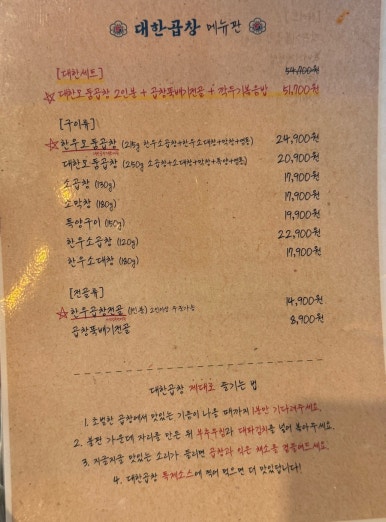 대한곱창 메뉴판
[대한세트] 54,700원
☆ 대한모둠곱창 2인분 + 곱창뚝배기전골 + 깍두기볶음밥 51,700원
[구이류]
☆ 한우모둠곱창 (215g 한우소곱창+한우소대창+막창+염통) 24,900원
대한모둠곱창 (250g 소곱창+소대창+막창+특양+염통) 20,900원
소곱창 (130g) 17,900원
소막창 (180g) 17,900원
특양구이 (150g) 19,900원
한우소곱창 (120g) 22,900원
한우소대창 (180g) 17,900원
[전골류]
☆ 한우곱창전골 (1인분) 2인이상 주문가능 14,900원
곱창뚝배기전골 8,900원
대한곱창 제대로 즐기는 법
1. 초벌한 곱창에서 맛있는 기름이 나올 때까지 1분만 기다려주세요.
2. 불판 가운데 자리를 만든 뒤 부추무침과 대파김치를 넣어 볶아주세요.
3. 지글지글 맛있는 소리가 들리면 곱창과 익은 채소를 곁들여드세요.
4. 대한곱창 특제소스에 찍어 먹으면 더 맛있답니다!